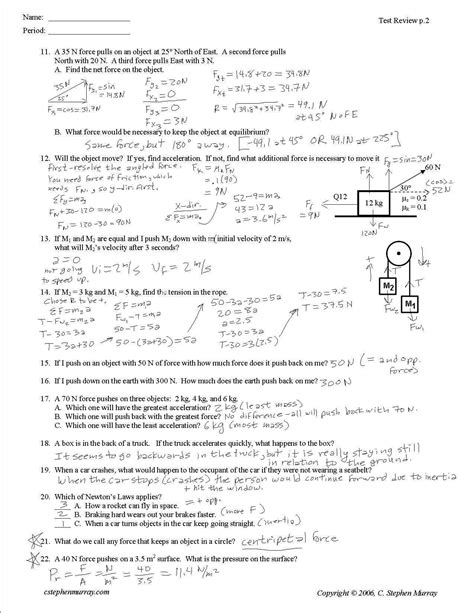 Name: ____________________
Test Review p.2
Period: ____________________
11. A 35 N force pulls on an object at 25° North of East. A second force pulls
North with 20 N. A third force pulls East with 3 N.
A. Find the net force on the object.
35N
25°
Fy=sin
=14.8N
Fx=cos=31.7N
Fy2=20N
Fx2=0
Fy3=0
Fx3=3N
Fy=14.8+20=34.8N
Fx=31.7+3=34.7
R=√34.8²+34.7² = 49.1 N
at 45° N of E
B. What force would be necessary to keep the object at equilibrium?
Same force, but 180° away. [-49.1 at 45° OR 49.1N at 225°]
12. Will the object move? If yes, find acceleration. If not, find what additional force is necessary to make it move
First-resolve the angled force.
You need force of friction, which
needs FN, so y-dir first.
ΣFy=may
FN+30-120=m(0)
FN=120-30=90N
Fx=μkFN
=.1(90)
=9N
x-dir.
ΣFx=max
52-9=ma
43=12a
a=3.6m/s²
Fy=sin=30N
60 N
30°
(cos)=
52N
FN
Ff
=9N
Q12
12 kg
μs = 0.2
μk = 0.1
Fw
120N
13. If M1 and M2 are equal and I push M2 down with an initial velocity of 2 m/s,
what will M2's velocity after 3 seconds?
a=0
not going
to speed
up
vi=2m/s
vf=2m/s
M2
M1
T
T
Fw2
Fw1
14. If M2 = 3 kg and M1 = 5 kg, find the tension in the rope.
Chose R to be +.
ΣF=m2a
T-Fw2=m2a
T-30=3a
T=3a+30
ΣF=m1a
Fw1-T=m1a
50-T=5a
50-(3a+30)=5a
50-3a-30=5a
20=8a
a=2.5
T-30=3a
T-30=3(2.5)
T-30=7.5
T=37.5N
15. If I push on an object with 50 N of force with how much force does it push back on me? 50N (= and opp. force)
16. If I push down on the earth with 300 N. How much does the earth push back on me? 300N
17. A 70 N force pushes on three objects: 2 kg, 4 kg, and 6 kg.
A. Which one will have the greatest acceleration? 2 kg (least mass)
B. Which one will push back with the greatest force? No difference-all will push back with 70 N.
C. Which one will have the least acceleration? 6 kg (most mass)
18. A box is in the back of a truck. If the truck accelerates quickly, what happens to the box?
It seems to go backwards in the truck, but it is really staying still
in relation to the ground.
19. When a car crashes, what would happen to the occupant of the car if they were not wearing a seatbelt?
When the car stops (crashes) the person would continue forward due to inertia
+ hit the window.
20. Which of Newton's Laws applies?
3 A. How a rocket can fly in space. = + opp.
2 B. Braking hard wears out your brakes faster. (more F)
1 C. When a car turns objects in the car keep going straight. (inertia)
21. What do we call any force that keeps an object in a circle? centripetal force
22. A 40 N force pushes on a 3.5 m² surface. What is the pressure on the surface?
Pr = F/A = N/m² = 40/3.5 = 11.4 N/m²
cstephenmurray.com
Copyright © 2006, C. Stephen Murray